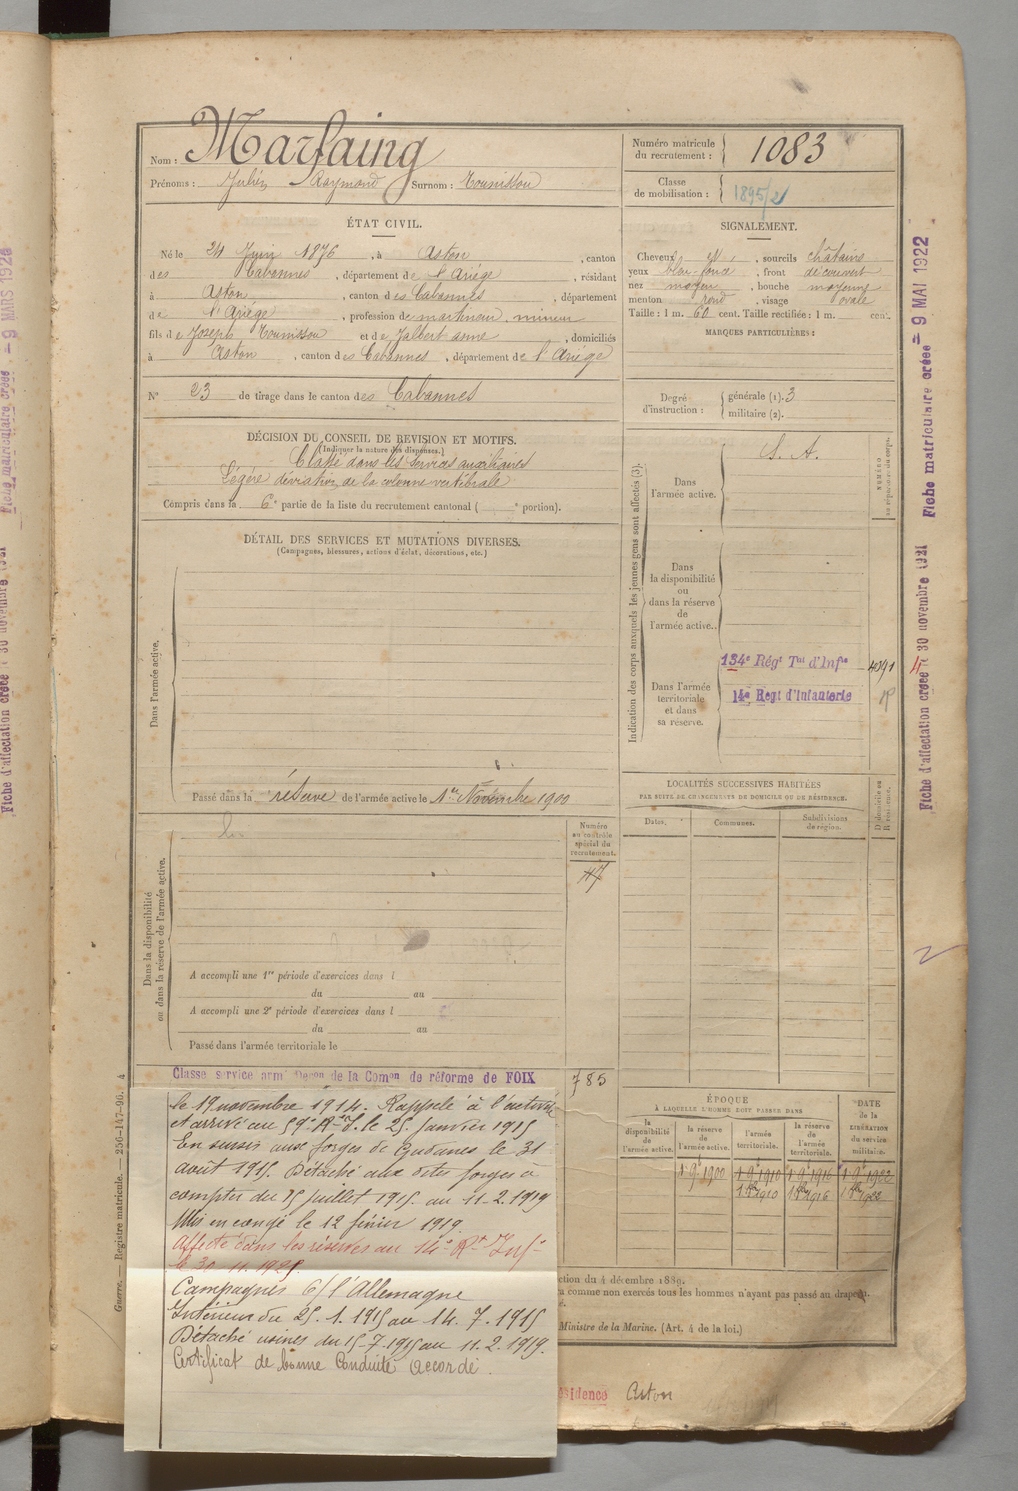 Nom : Marfaing
Prénoms : Julien Raymond Surnom : Tounissou
Numéro matricule du recrutement : 1083
Classe de mobilisation : 1895/2
ÉTAT CIVIL.
Né le 24 Juin 1876, à Aston, canton
des Cabannes, département de l'Ariége, résidant
à Aston, canton des Cabannes, département
de l'Ariége, profession de mineur
fils de Joseph Tounissou et de Jalbert anne, domiciliés
à Aston, canton des Cabannes, département de l'Ariége
N° 23 de tirage dans le canton des Cabannes
SIGNALEMENT.
Cheveux et, sourcils châtains
yeux bleu foncé, front découvert
nez moyen, bouche moyenne
menton rond, visage ovale
Taille : 1 m. 60 cent. Taille rectifiée : 1 m. cent.
MARQUES PARTICULIÈRES :
Degré d'instruction : générale (1). 3
militaire (2).
DÉCISION DU CONSEIL DE REVISION ET MOTIFS.
(Indiquer la nature des dispenses.)
Classé dans les Services auxiliaires
Légère déviation de la colonne vertébrale
Compris dans la 6e partie de la liste du recrutement cantonal ( e portion).
DÉTAIL DES SERVICES ET MUTATIONS DIVERSES.
(Campagnes, blessures, actions d'éclat, décorations, etc.)
Dans l'armée active.
Passé dans la réserve de l'armée active le 1er Novembre 1900
Indication des corps auxquels les jeunes gens sont affectés (3).
Dans l'armée active.
S. A.
NUMÉRO
Dans la disponibilité ou dans la réserve de l'armée active.
Dans l'armée territoriale et dans sa réserve.
134e Régt Tal d'Infie
14e Regt d'Infanterie
LOCALITÉS SUCCESSIVES HABITÉES
PAR SUITE DE CHANGEMENTS DE DOMICILE OU DE RÉSIDENCE.
Dates.
Communes.
Subdivisions de région.
D domicile ou R résidence.
Numéro au contrôle spécial du recrutement.
Dans la disponibilité ou dans la réserve de l'armée active.
A accompli une 1re période d'exercices dans l
du au
A accompli une 2e période d'exercices dans l
du au
Passé dans l'armée territoriale le
785
Classé service armé Déçon de la Comon de réforme de FOIX
le 19 novembre 1914. Rappelé à l'activité
et arrivé au 59e Rt d'I. le 25 janvier 1915
En sursis aux forges de Gudanes le 31
août 1915. Détaché aux dites forges à
compter du 15 juillet 1915 au 11-2.1919
Mis en congé le 12 février 1919.
Affecté dans les réserves au 14e Rt Inf.
Campagnes C/ l'Allemagne
Intérieur du 25.1.1915 au 14.7.1915
Détaché usines du 15-7-1915 au 11.2.1919.
Certificat de bonne Conduite accordé.
ÉPOQUE
À LAQUELLE L'HOMME DOIT PASSER DANS
la disponibilité de l'armée active.
la réserve de l'armée active.
l'armée territoriale.
la réserve de l'armée territoriale.
DATE de la LIBÉRATION du service militaire.
1 9 1900 1 9 1910 1 9 1916 1 9 1922
1 1910 1 1916 1 1922
ction du 4 décembre 1889.
comme non exercés tous les hommes n'ayant pas passé au drapeau.
Ministre de la Marine. (Art. 4 de la loi.)
ésidence Aston
Guerre. — Registre matricule. — 256-147-96. 4
Fiche matriculaire créée — 9 MAI 1922
Fiche d'affectation créée le 30 novembre 1921
Fiche matriculaire créée — 9 MARS 1922
Fiche d'affectation créée le 30 novembre 1921